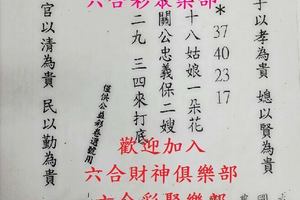 六合彩聚樂部
子以孝為貴 媳以賢為貴
*
37
40
23
17
十八姑娘一朵花
關公忠義保二嫂
二九 三四來打底
僅供公益彩卷選號用
官以清為貴 民以勤為貴
歡迎加入
六合財神俱樂部
六合彩聚樂部
國